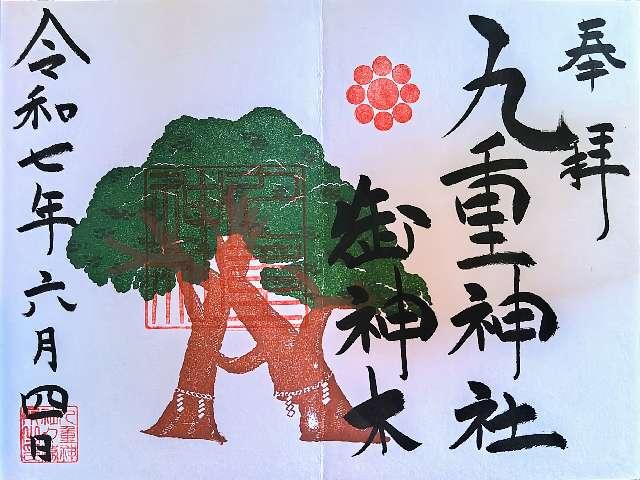 奉拝
九重神社
御神木
令和七年六月四日